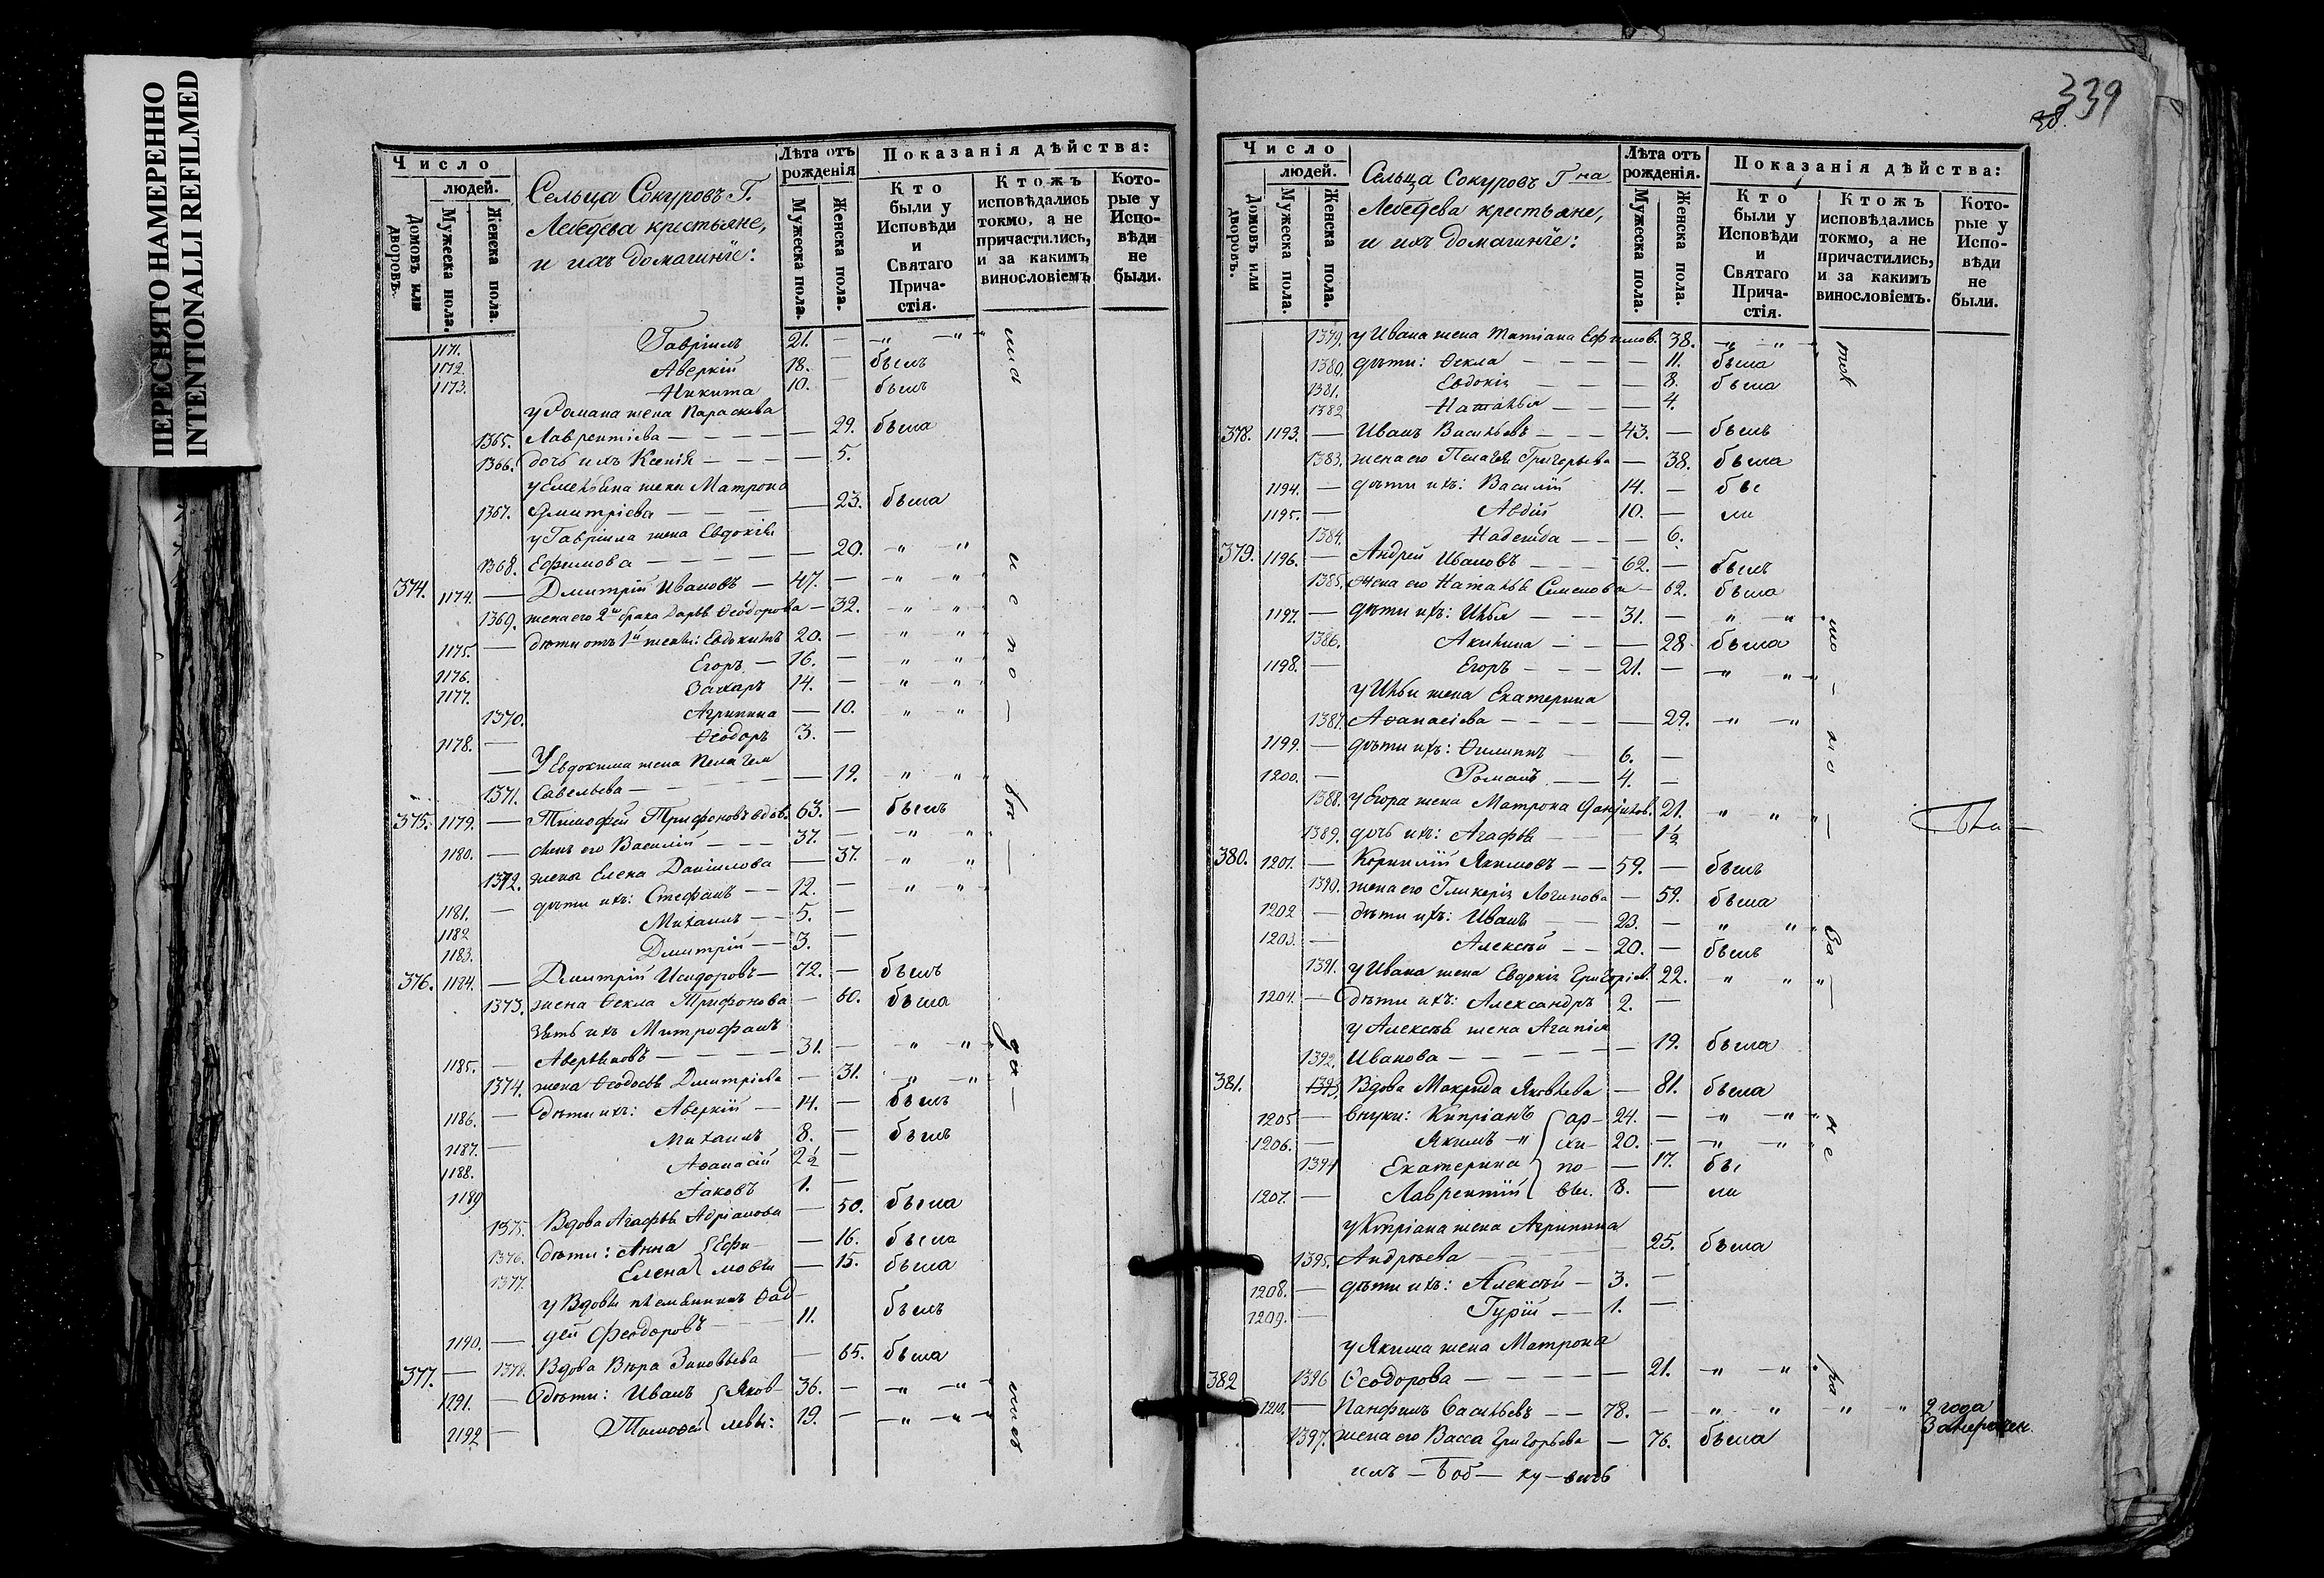 ПЕРЕСНЯТО НАМЕРЕННО
INTENTIONALLI REFILMED
Число
людей.
Домовъ или дворовъ.
Мужеска пола.
Женска пола.
Сельца Сокуровъ Г.
Лебедева крестьяне,
и ихъ домашнiе:
Лѣта отъ рожденiя
Мужеска пола.
Женска пола.
Показанiя дѣйства:
Кто были у Исповѣди и Святаго Прича-стiя.
Ктожъ исповѣдались токмо, а не причастились, и за какимъ винословiемъ
Кото-рые у Испо-вѣди не были.
1171. Гаврiилъ 21. — " — "
1172. Аверкiй 18. — былъ
1173. Никита 10. — былъ
у Романа жена Параскева
1365. Лаврентiева — — — — 29. была
1366. дочь ихъ Ксенiя — — — — 5.
у Емельяна жена Матрона
1367. Дмитрiева — — — — 23. была
у Гаврiила жена Евдокiя
1368. Ефимова — — — — 20. — " — "
374. 1174. — Дмитрiй Ивановъ — 47. — — " — "
1369. жена его 2го брака Дарья Ѳеодорова — 32. — " — "
1175. — дѣти отъ 1й жены: Евдокимъ 20. — — " — "
1176. Егоръ — 16. — — " — "
1177. Захаръ 14. — — " — "
1370. Агрипина — 10. " — "
1178. — Ѳеодоръ 3. —
— У Евдокима жена Пелагея
1371. Савельева — — — — 19. " — "
375. 1179. — Тимофей Трифоновъ вдов. 63. — былъ
1180. — сынъ его Василiй — — — 37. — — " — "
1372. жена Елена Данiилова — 37. " — "
1181. — дѣти ихъ: Стефанъ — — 12. — — " — "
1182 Михаилъ — — 5. —
1183. Дмитрiй — — 3. —
376. 1184. — Дмитрiй Исидоровъ — 72. — былъ
1373. жена Ѳекла Трифонова — 60. была
Зять ихъ Митрофанъ
1185. — Аверьяновъ — — — — 31. — " — "
1374. жена Ѳеодосья Дмитрiева — 31. — " — "
1186. — дѣти ихъ: Аверкiй — 14. — былъ
1187. — Михаилъ 8. — былъ
1188. Аѳанасiй 2½ —
1189 Iаковъ 1. —
1375. Вдова Агафья Адрiанова — 50. была
1376. дѣти: Анна { Ефи- — 16. была
1377. Елена { мовы — 15. была
у Вдовы племянникъ Ѳад-
1190. — дей Феодоровъ — — — 11. былъ
377. — 1378. Вдова Вѣра Зиновьева — 65. была
1191. — дѣти: Иванъ { Яков- 36. — — " — "
1192 — Тимоѳей { левы: 19. — — " — "
339
38.
Число
людей.
Домовъ или дворовъ.
Мужеска пола.
Женска пола.
Сельца Сокуровъ Гна
Лебедева крестьяне,
и ихъ домашнiе:
Лѣта отъ рожденiя.
Мужеска пола.
Женска пола.
Показанiя дѣйства:
Кто были у Исповѣди и Святаго Прича-стiя.
Ктожъ исповѣдались токмо, а не причастились, и за какимъ винословiемъ.
Кото-рые у Испо-вѣди не были.
1379. у Ивана жена Татiана Ефимов. 38. — " — "
1380. дѣти: Ѳекла — — — 11. была
1381. Евдокiя — — — 8. была
1382 Наталья — — — 4.
378. 1193. — Иванъ Васильевъ — — — 43. — былъ
1383. жена его Пелагея Григорьева — 38. была
1194. — дѣти ихъ: Василiй 14. — бы
1195. — Авдiй 10. — ли
1384. Надежда — — — 6.
379. 1196. — Андрей Ивановъ — — — 62. — былъ
1385. жена его Наталья Семенова — 62. была
1197. — дѣти ихъ: Илья — — — 31. — " — "
1386. Акилина — — — 28. была
1198. — Егоръ — — — 21. — — " — "
у Ильи жена Екатерина
1387. Аѳанасiева — — — — 29. — " — "
1199. — дѣти ихъ: Филиппъ — 6. —
1200. — Романъ — — 4. —
1388. у Егора жена Матрона Данiилов. 21. " — "
1389. дочь ихъ: Агафья — — — 1½
380. 1201. — Корнилiй Якимовъ — — 59. — былъ
1390. жена его Гликерiя Логинова — 59. была
1202 — дѣти ихъ: Иванъ — — 23. — " — "
1203. — Алексѣй — — 20. — былъ
1391. у Ивана жена Евдокiя Григорiев. 22. " — "
1204. — дѣти ихъ: Александръ 2. —
у Алексѣя жена Агапiя
1392. Иванова — — — — — 19. была
381. 1393. Вдова Макрида Яковлева — 81. была
1205 — внуки: Кипрiанъ { ар- 24. — " — "
1206. — Якимъ — " { хи- 20. — — " — "
1394 Екатерина { по- — 17. бы
1207. — Лаврентiй { вы. 8. — ли
у Кипрiана жена Агрипина
1395. Андрѣева — — — — 25. была
1208. — дѣти ихъ: Алексѣй — 3. —
1209. — Гурiй — — 1. —
у Якима жена Матрона
382 1396 Ѳеодорова — — — — — 21. — " — "
1210. — Панфилъ Васильевъ — — 78. — " — " — " — " 2 года
1397. жена его Васса Григорьева — 76. была